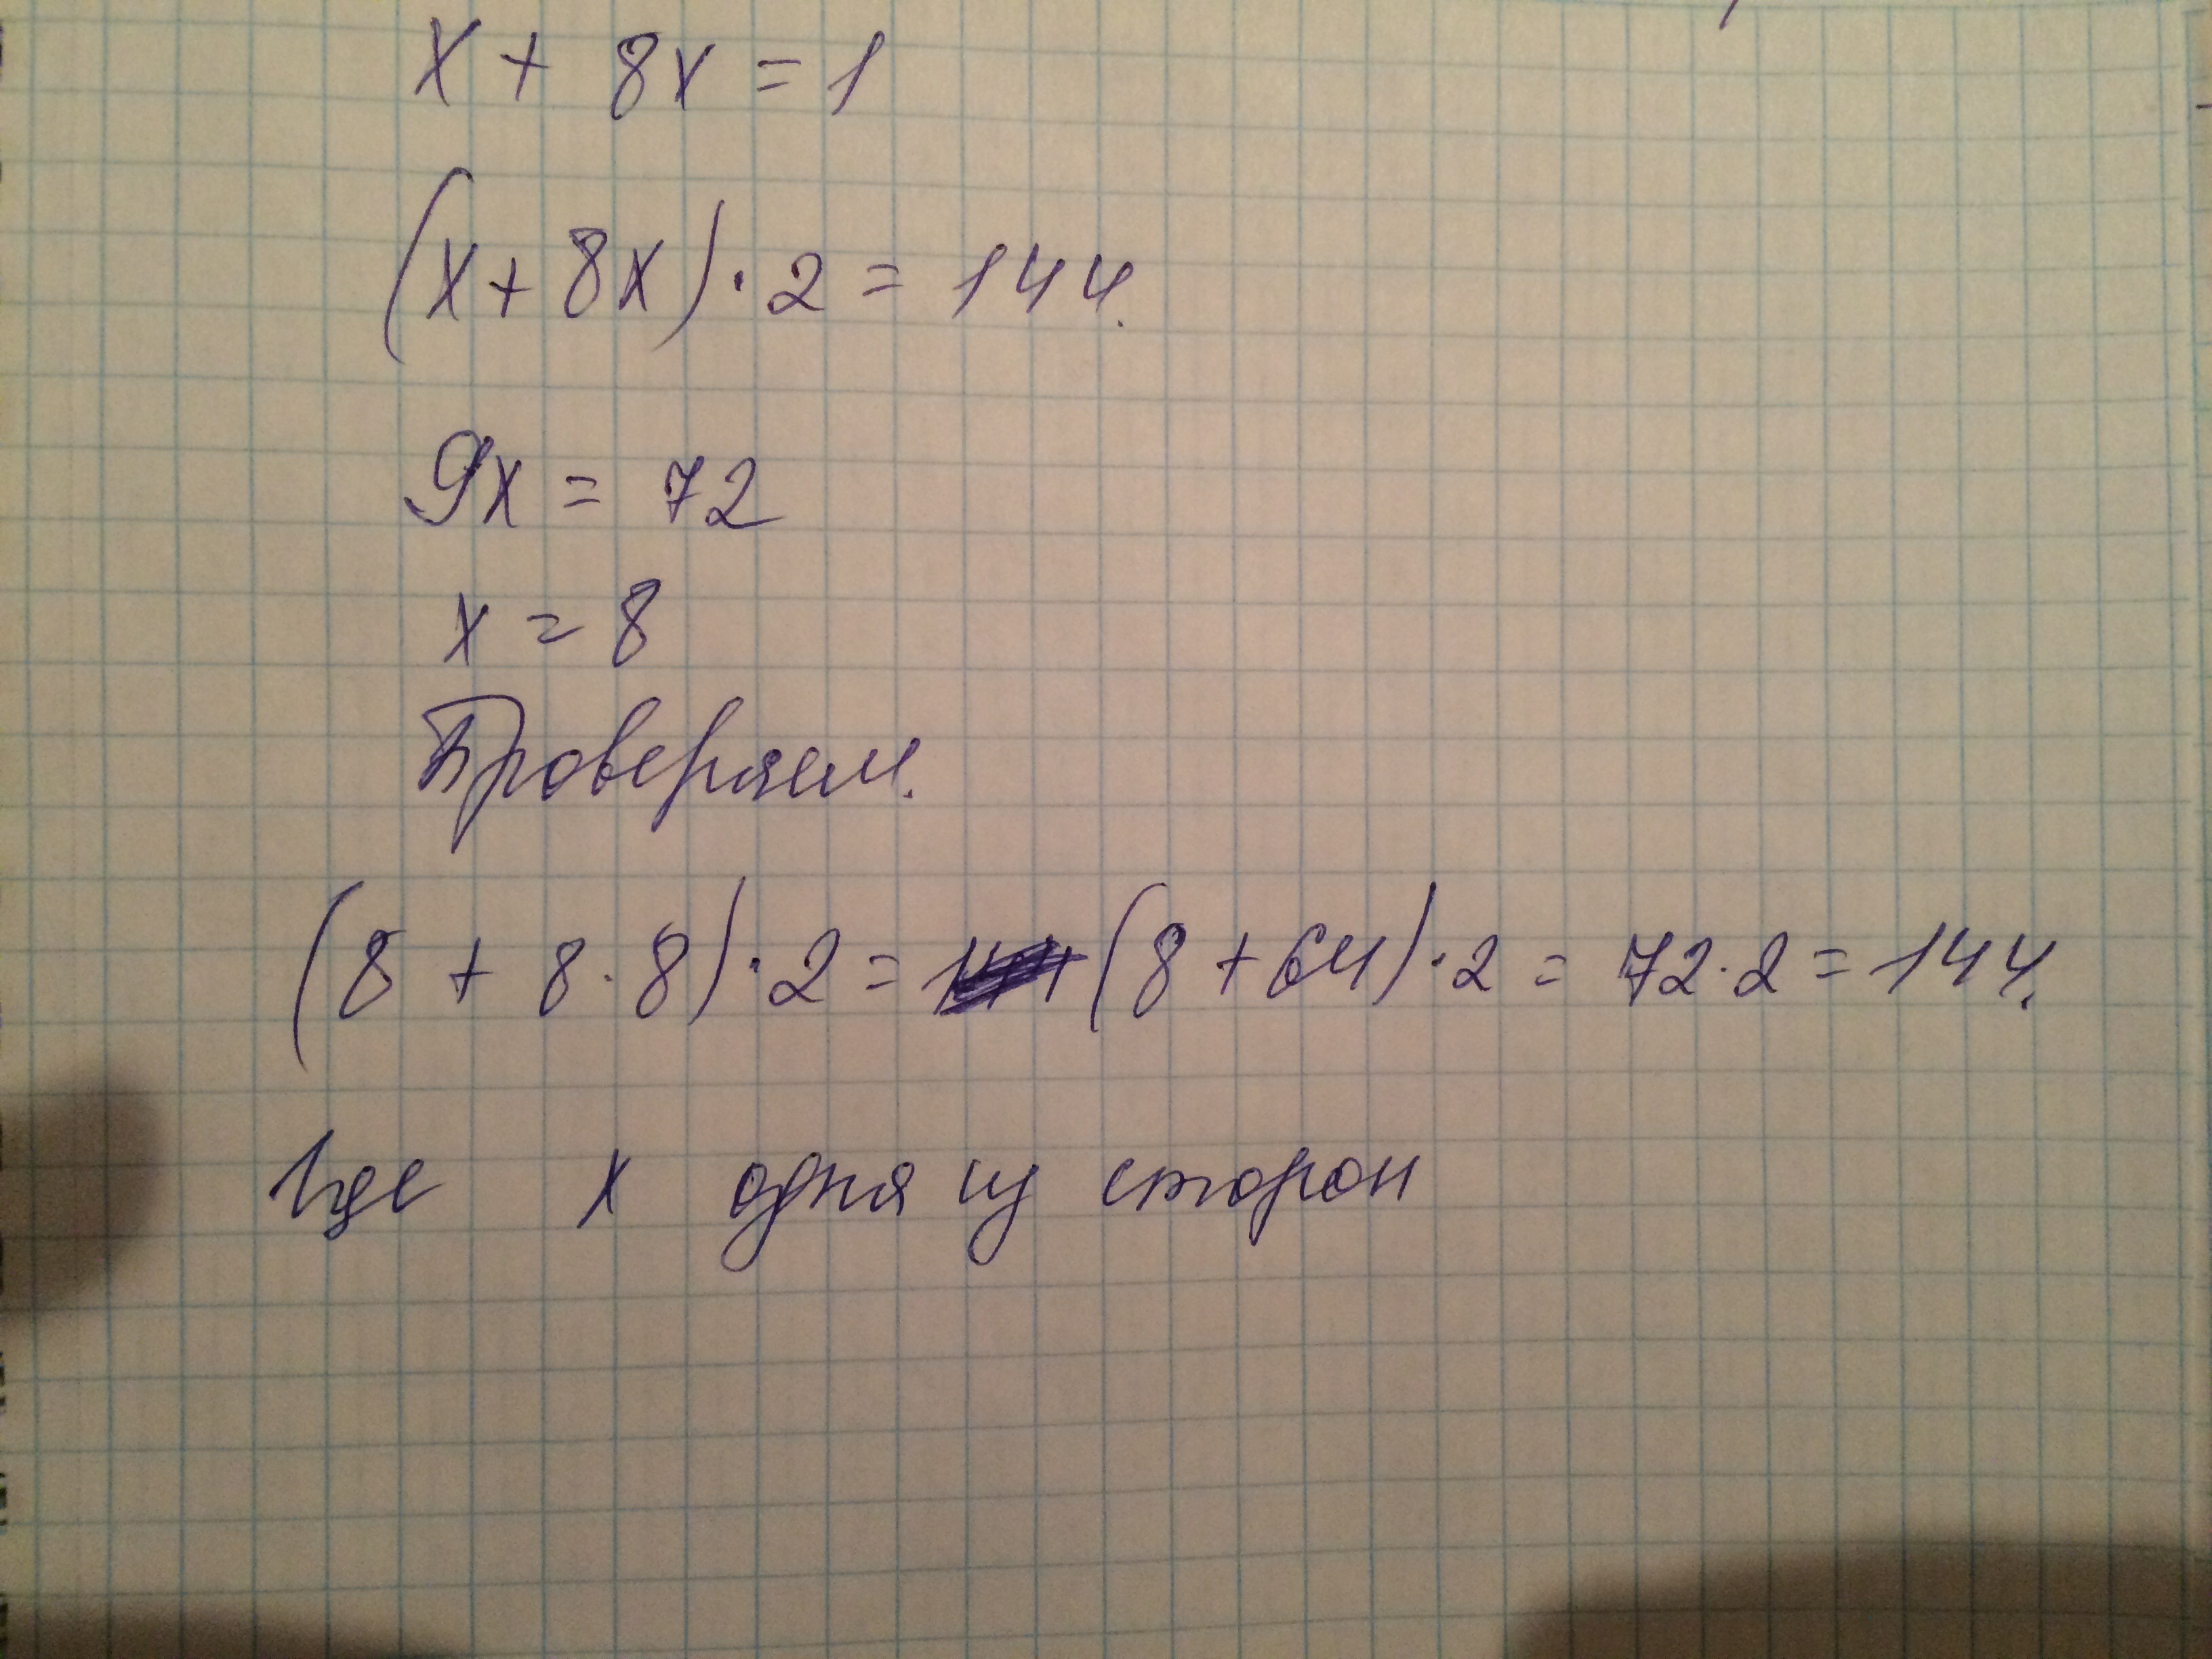 x + 8x = 1
(x + 8x) · 2 = 144.
9x = 72
x = 8
Проверяем.
(8 + 8 · 8) · 2 = (8 + 64) · 2 = 72 · 2 = 144.
где x одна из сторон